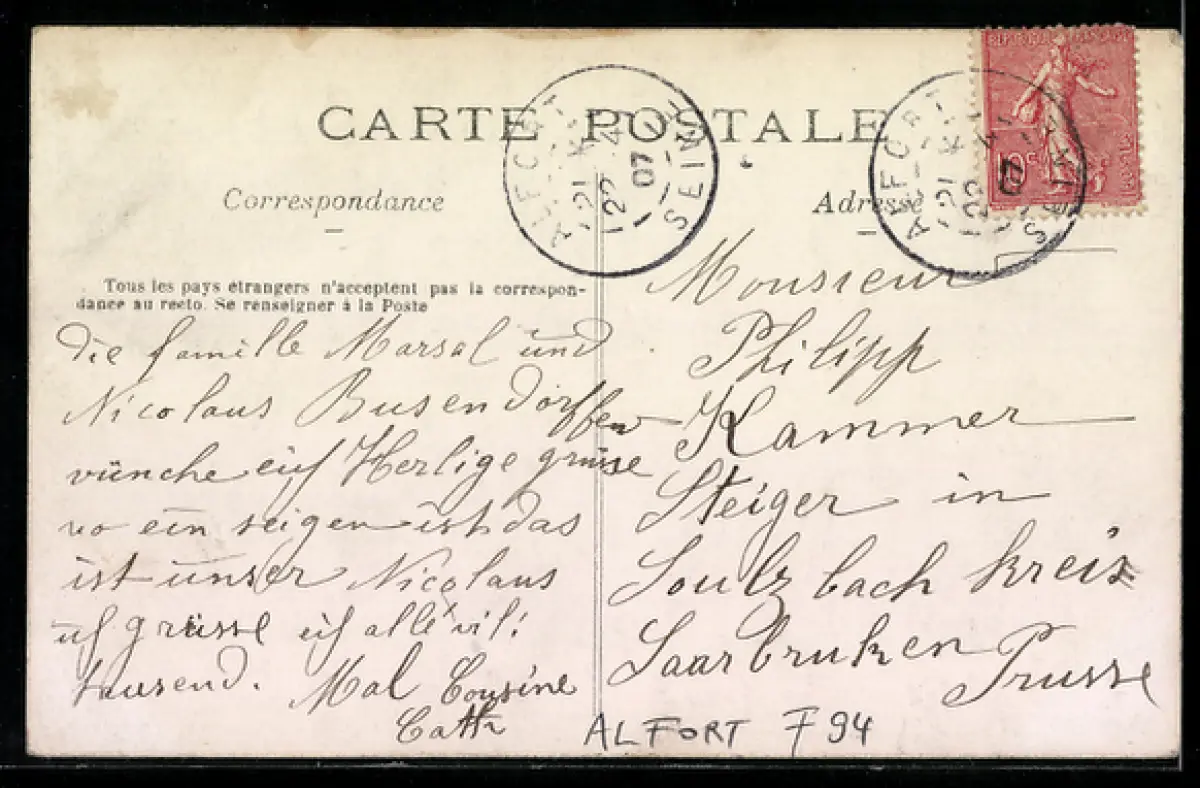 CARTE POSTALE
Correspondance
Adresse
ALFORT
SEINE
21
22 4
07
ALFORT
SEINE
21
22
REPUBLIQUE FRANÇAISE
10c
POSTES
Tous les pays étrangers n'acceptent pas la correspon-
dance au recto. Se renseigner à la Poste
Die familie Marsal und
Nicolaus Busendorffen
vünche eich Herlige grüsse
wo ein zeigen ist das
ist unser Nicolaus
ich grüsse eich alle vil!
tausend. Mal Cousine
Cath
Monsieur
Philipp
Kammer
Steiger in
Soulzbach Kreis
Saarbruken
Prusse
ALFORT F 94